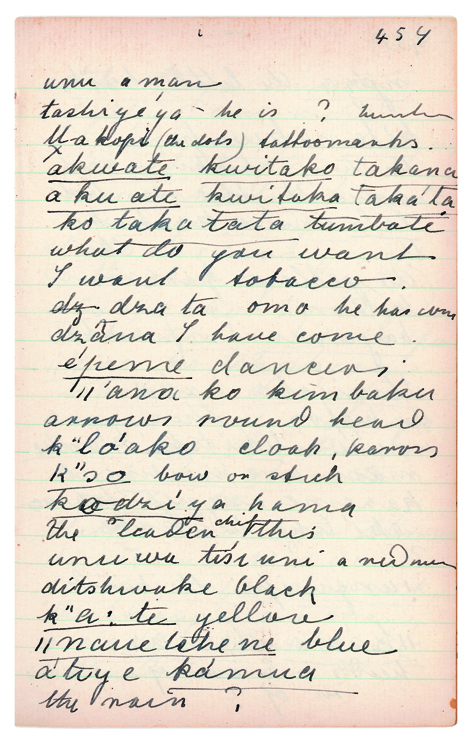 454
unu a man
tashiyéya he is ?
Makopi (the dots) tattoomarks.
akwate kwitako takana
a ku ate kwitaka takáta
ko taka tata tumbate
what do you want
I want tobacco.
dzata omo he has come
dzána I have come.
épeme dancers
ǁ'ana ko kimbaku
arrows round head
k"ló'ako cloak, kaross
k"so bow or stick
kadzi'ya hama
the leader chief this
unuwa tisi uni a red man
ditshwake black
k"a: te yellow
ǁnauetshene blue
átuye kámua
the rain ?